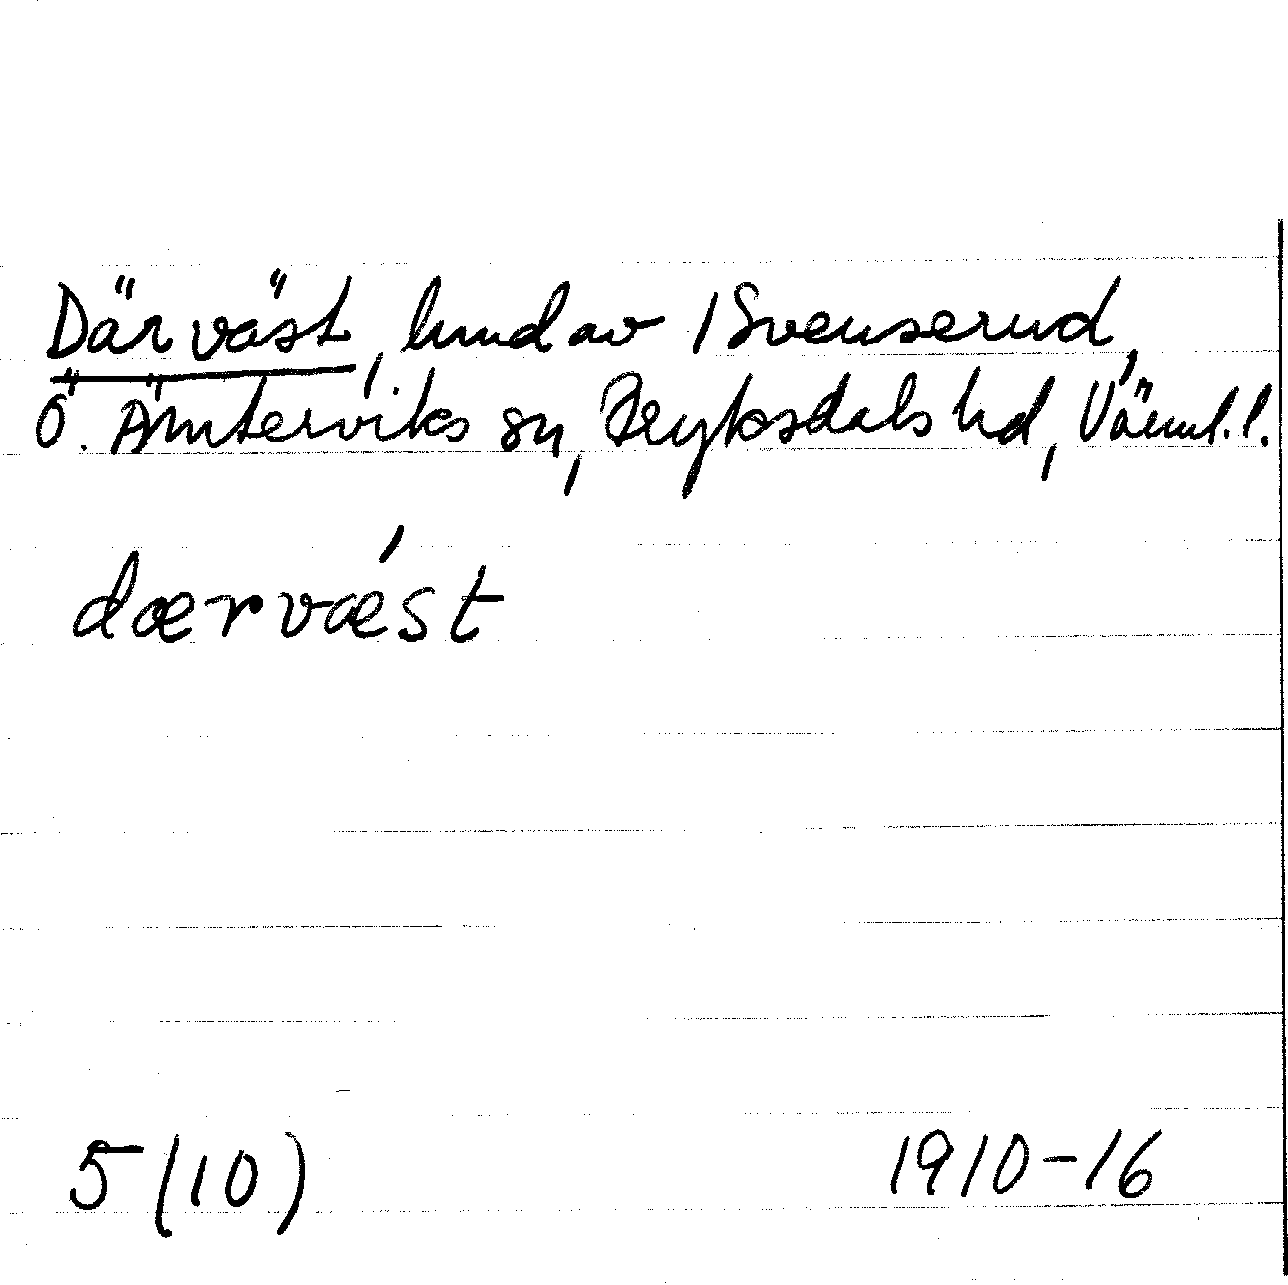 Där väst, hmd av 1 Svenserud,
Ö. Ämterviks sn, Fryksdals hd, Värml. l.
dærvǽst
5 (10) 1910-16